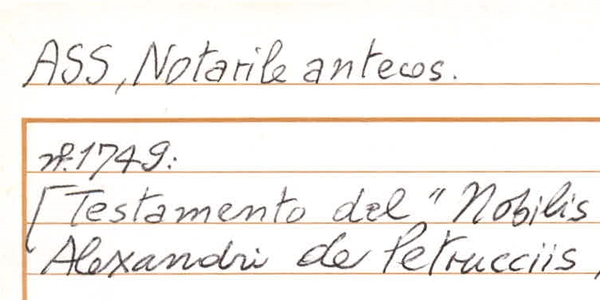 ASS, Notarile antecos.
nº. 1749:
[Testamento del "Nobilis
Alexandri de Petrucciis,